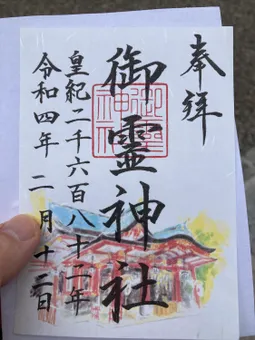 奉拝
御霊神社
御霊
神社
皇紀二千六百八十二年
令和四年 二月十二日